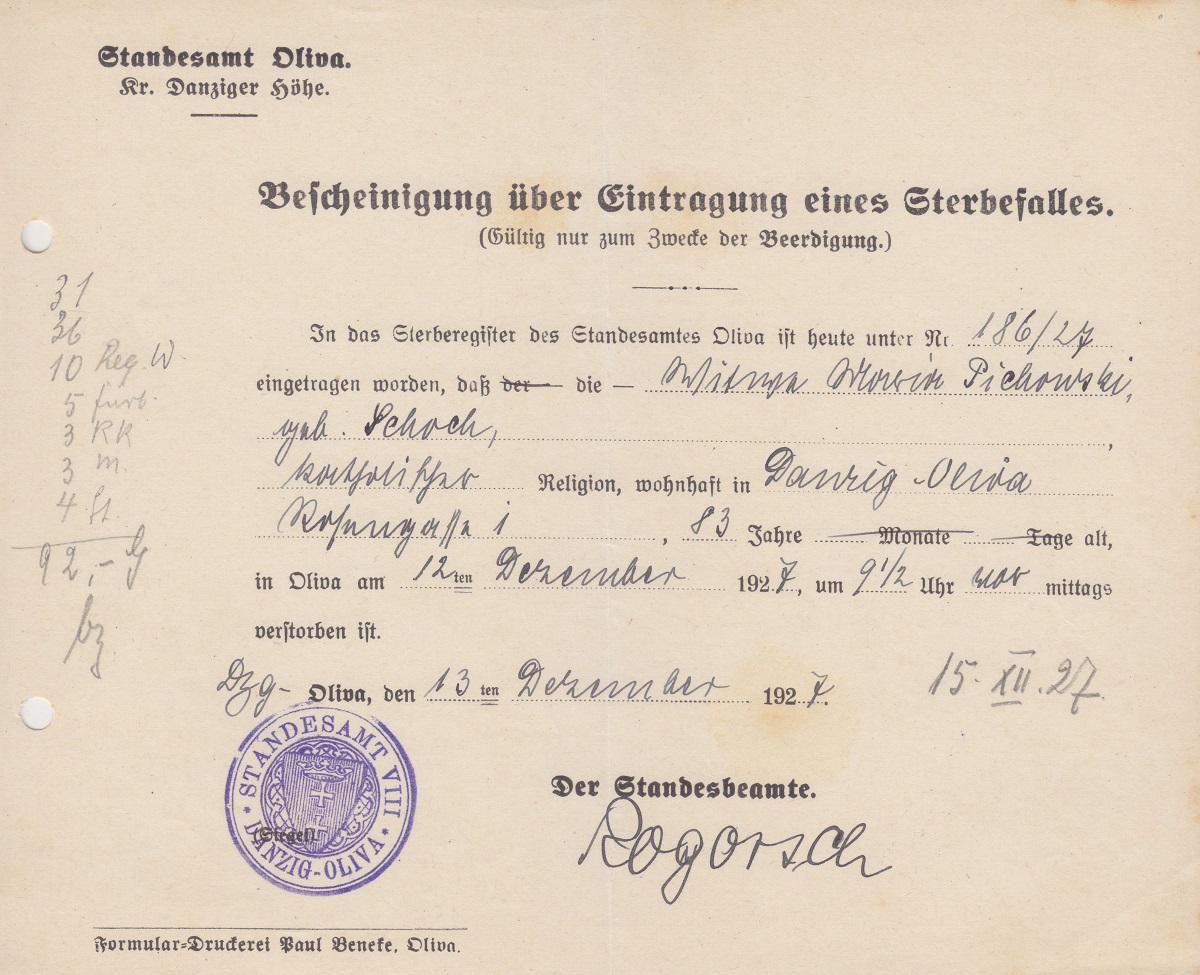 Standesamt Oliva.
Kr. Danziger Höhe.
Bescheinigung über Eintragung eines Sterbefalles.
(Gültig nur zum Zwecke der Beerdigung.)
In das Sterberegister des Standesamtes Oliva ist heute unter Nr. 186/27
eingetragen worden, daß der die – Witwe Maria Pichowski,
geb. Schoch,
katholischer Religion, wohnhaft in Danzig-Oliva
Rosengasse 1, 83 Jahre Monate Tage alt,
in Oliva am 12ten Dezember 1927, um 9 1/2 Uhr vor mittags
verstorben ist.
Dzg- Oliva, den 13ten Dezember 1927.
15. XII. 27.
STANDESAMT VIII
DANZIG-OLIVA
(Siegel).
Der Standesbeamte.
Rogorsch
Formular-Druckerei Paul Beneke, Oliva.
31
36
10 Reg. W.
5
3 KK
3 m.
4 St.
92,- G
bz